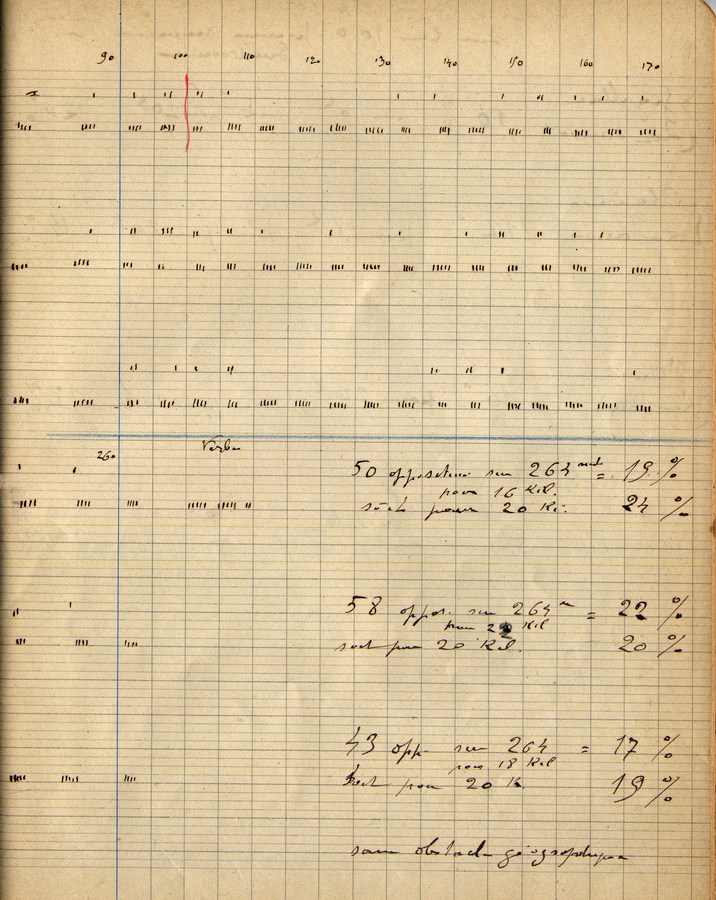 90 100 110 120 130 140 150 160 170
260 Verbes
50 oppositions sur 264 mots = 19 %
pour 16 Kil.
soit pour 20 Ki. 24 %
58 oppos. sur 264 m = 22 %
pour 22 Kil
soit pour 20 Kil. 20 %
43 opp. sur 264 = 17 %
pour 18 Kil
soit pour 20 K. 19 %
sans obstacle géographique